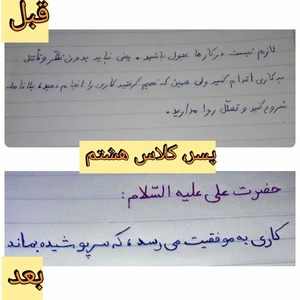 قبل
لازم نیست در کارها عجول باشید. یعنی نباید بدون تفکر و تأمل
به کاری اقدام کنید ولی همین که تصمیم گرفتید کاری را انجام دهید، بلافاصله
شروع کنید و تعلل روا مدارید.
پسر کلاس هشتم
حضرت علی علیه السّلام:
کاری به موفقیت می رسد، که سرپوشیده بماند
بعد